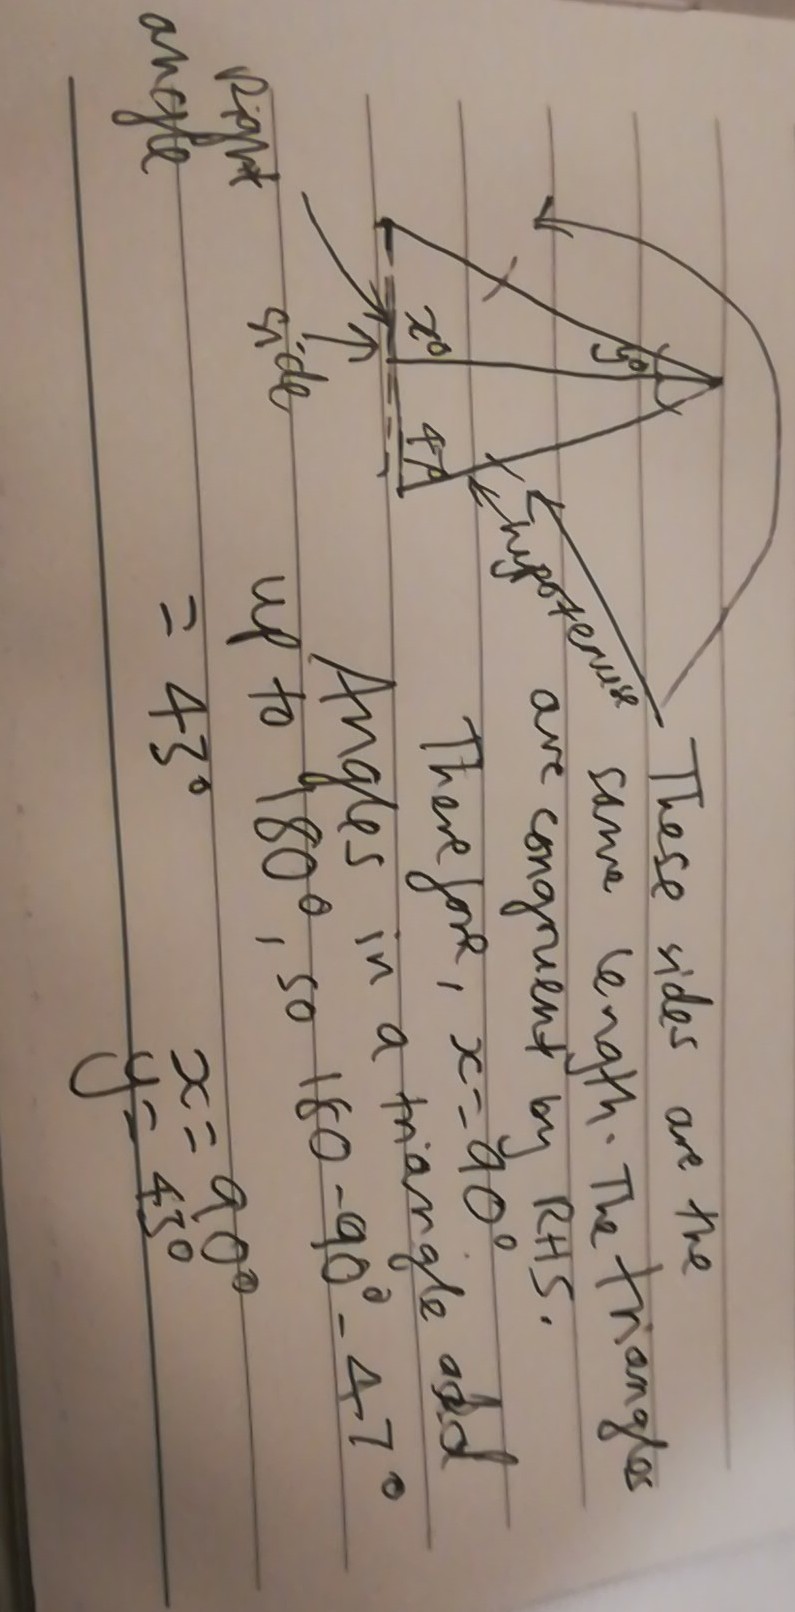 y°
x°
47°
Right
angle
side
hypotenuse
These sides are the
same length. The triangles
are congruent by RHS.
Therefore, x=90°
Angles in a triangle add
up to 180°, so 180-90°-47°
= 43°
x=90°
y=43°